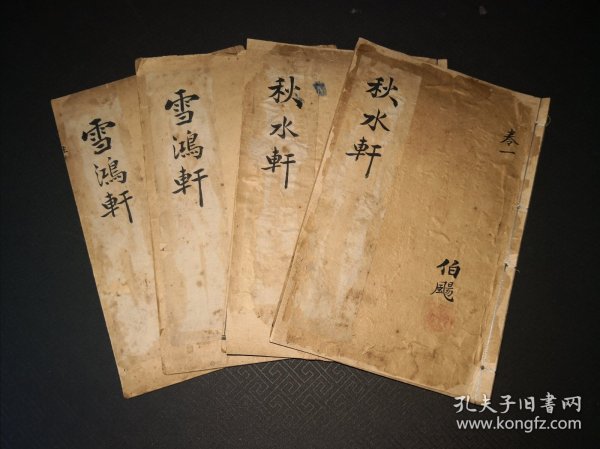 雪鴻軒
雪鴻軒
秋水軒
秋水軒
卷一
伯颺
孔夫子旧书网
www.kongfz.com